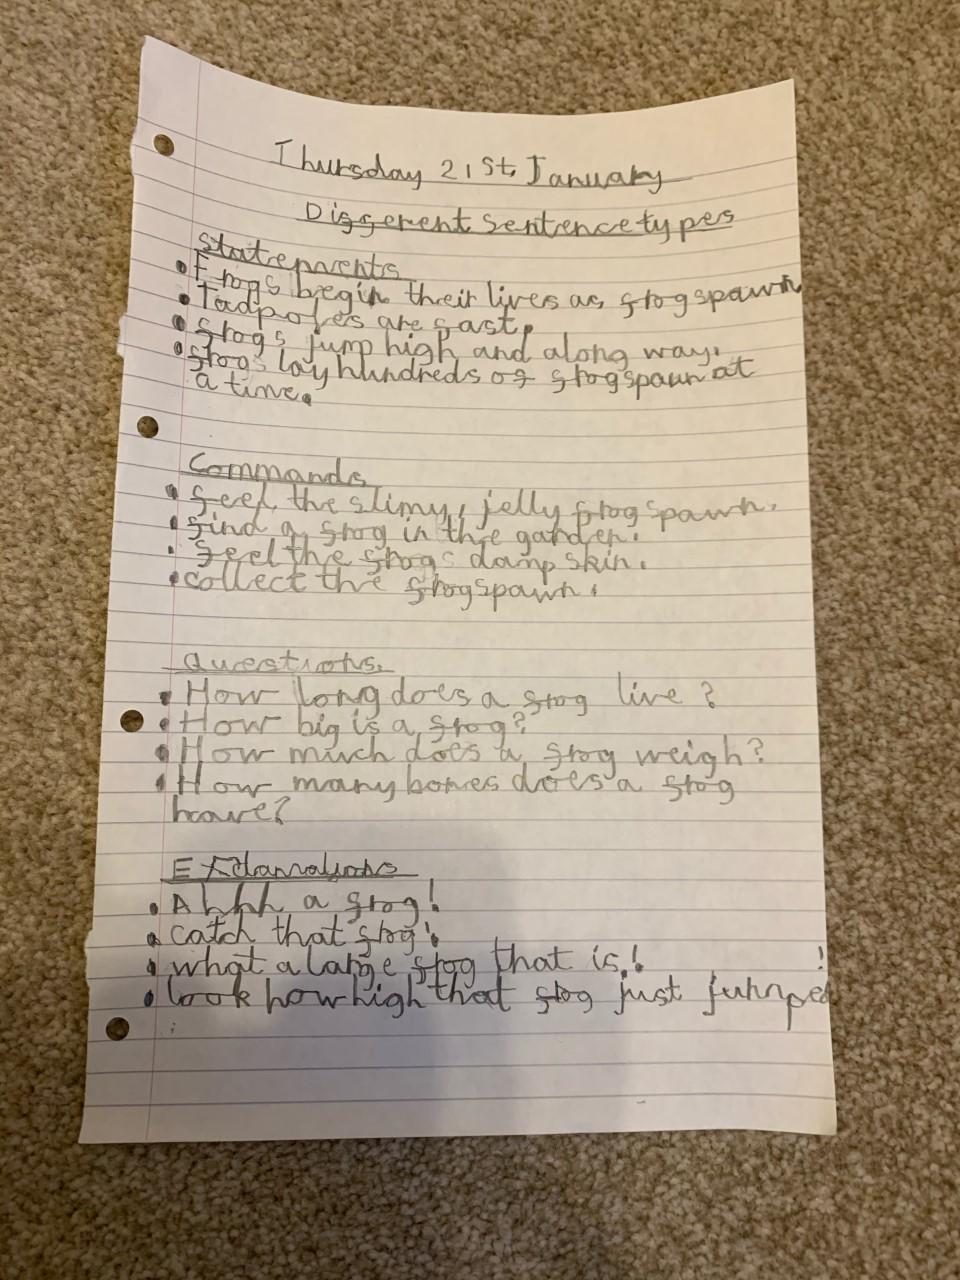 Thursday 21st. January
Different sentence types
Statements
• Frogs begin their lives as frogspawn
• Tadpoles are fast.
• frogs jump high and along way.
• frogs lay hundreds of frogspawn at
a time.
Commands
• feel the slimy, jelly frogspawn.
• find a frog in the garden.
• feel the frogs damp skin.
• collect the frogspawn.
Questions.
• How long does a frog live?
• How big is a frog?
• How much does a frog weigh?
• How many bones does a frog
have?
Exclamations
• Ahhh a frog!
• catch that frog!
• what a large frog that is!
• look how high that frog just jumped!